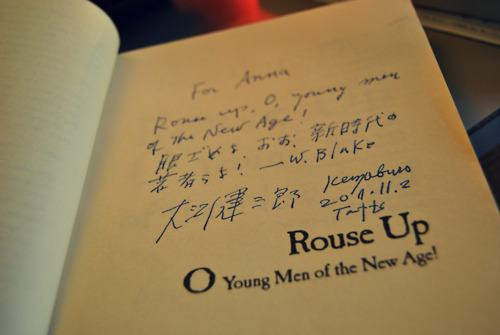 For Anna
Rouse up, O, young men
of the New Age!
眼ざめよ、おお、新時代の
若者らよ! — W. Blake
大江健三郎 Kenzaburo
11.2
Rouse Up
O Young Men of the New Age!